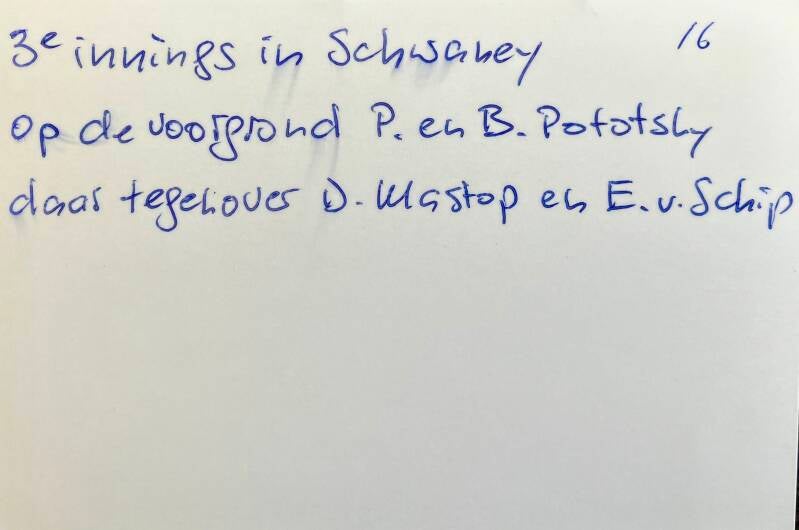 3e innings in Schwaney 16
op de voorgrond P. en B. Pototsky
daar tegenover D. Mastop en E. v. Schip